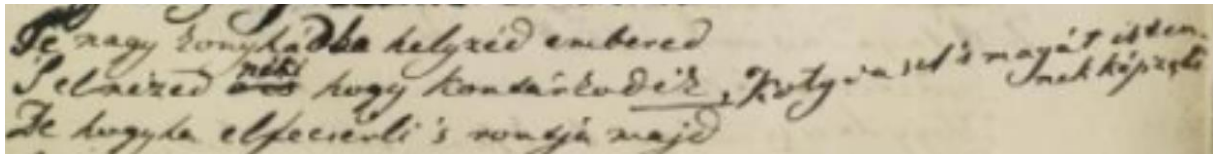 Te nagy konyhádba helyzéd embered
S elnézed néki hogy kontárkodik, Kotyvaszt 's magát isten-
nek képzeli
De hogyha elfecsérli 's rontja majd